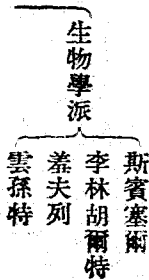 生物學派
斯賓塞爾
李林胡爾特
羞夫列
雲孫特